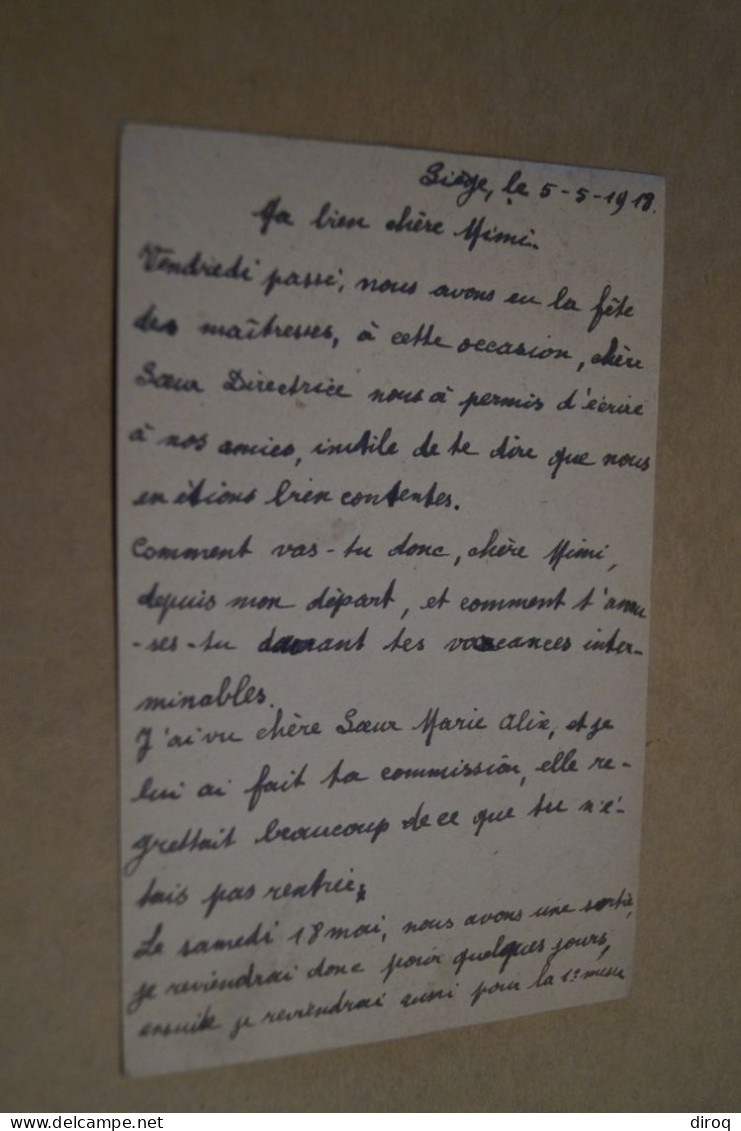 Liège, le 5-5-1918.
Ma bien chère Mimi.
Vendredi passé, nous avons eu la fête
des maîtresses, à cette occasion, chère
Sœur Directrice nous à permis d'écrire
à nos amies, inutile de te dire que nous
en étions bien contentes.
Comment vas-tu donc, chère Mimi,
depuis mon départ, et comment t'amu
-ses-tu durant tes vacances inter-
minables.
J'ai vu chère Sœur Marie Alix, et je
lui ai fait ta commission, elle re-
grettait beaucoup de ce que tu n'é-
tais pas rentrée.
Le samedi 18 mai, nous avons une sortie,
je reviendrai donc pour quelques jours,
ensuite je reviendrai aussi pour la 1e messe
delcampe.net
diroq